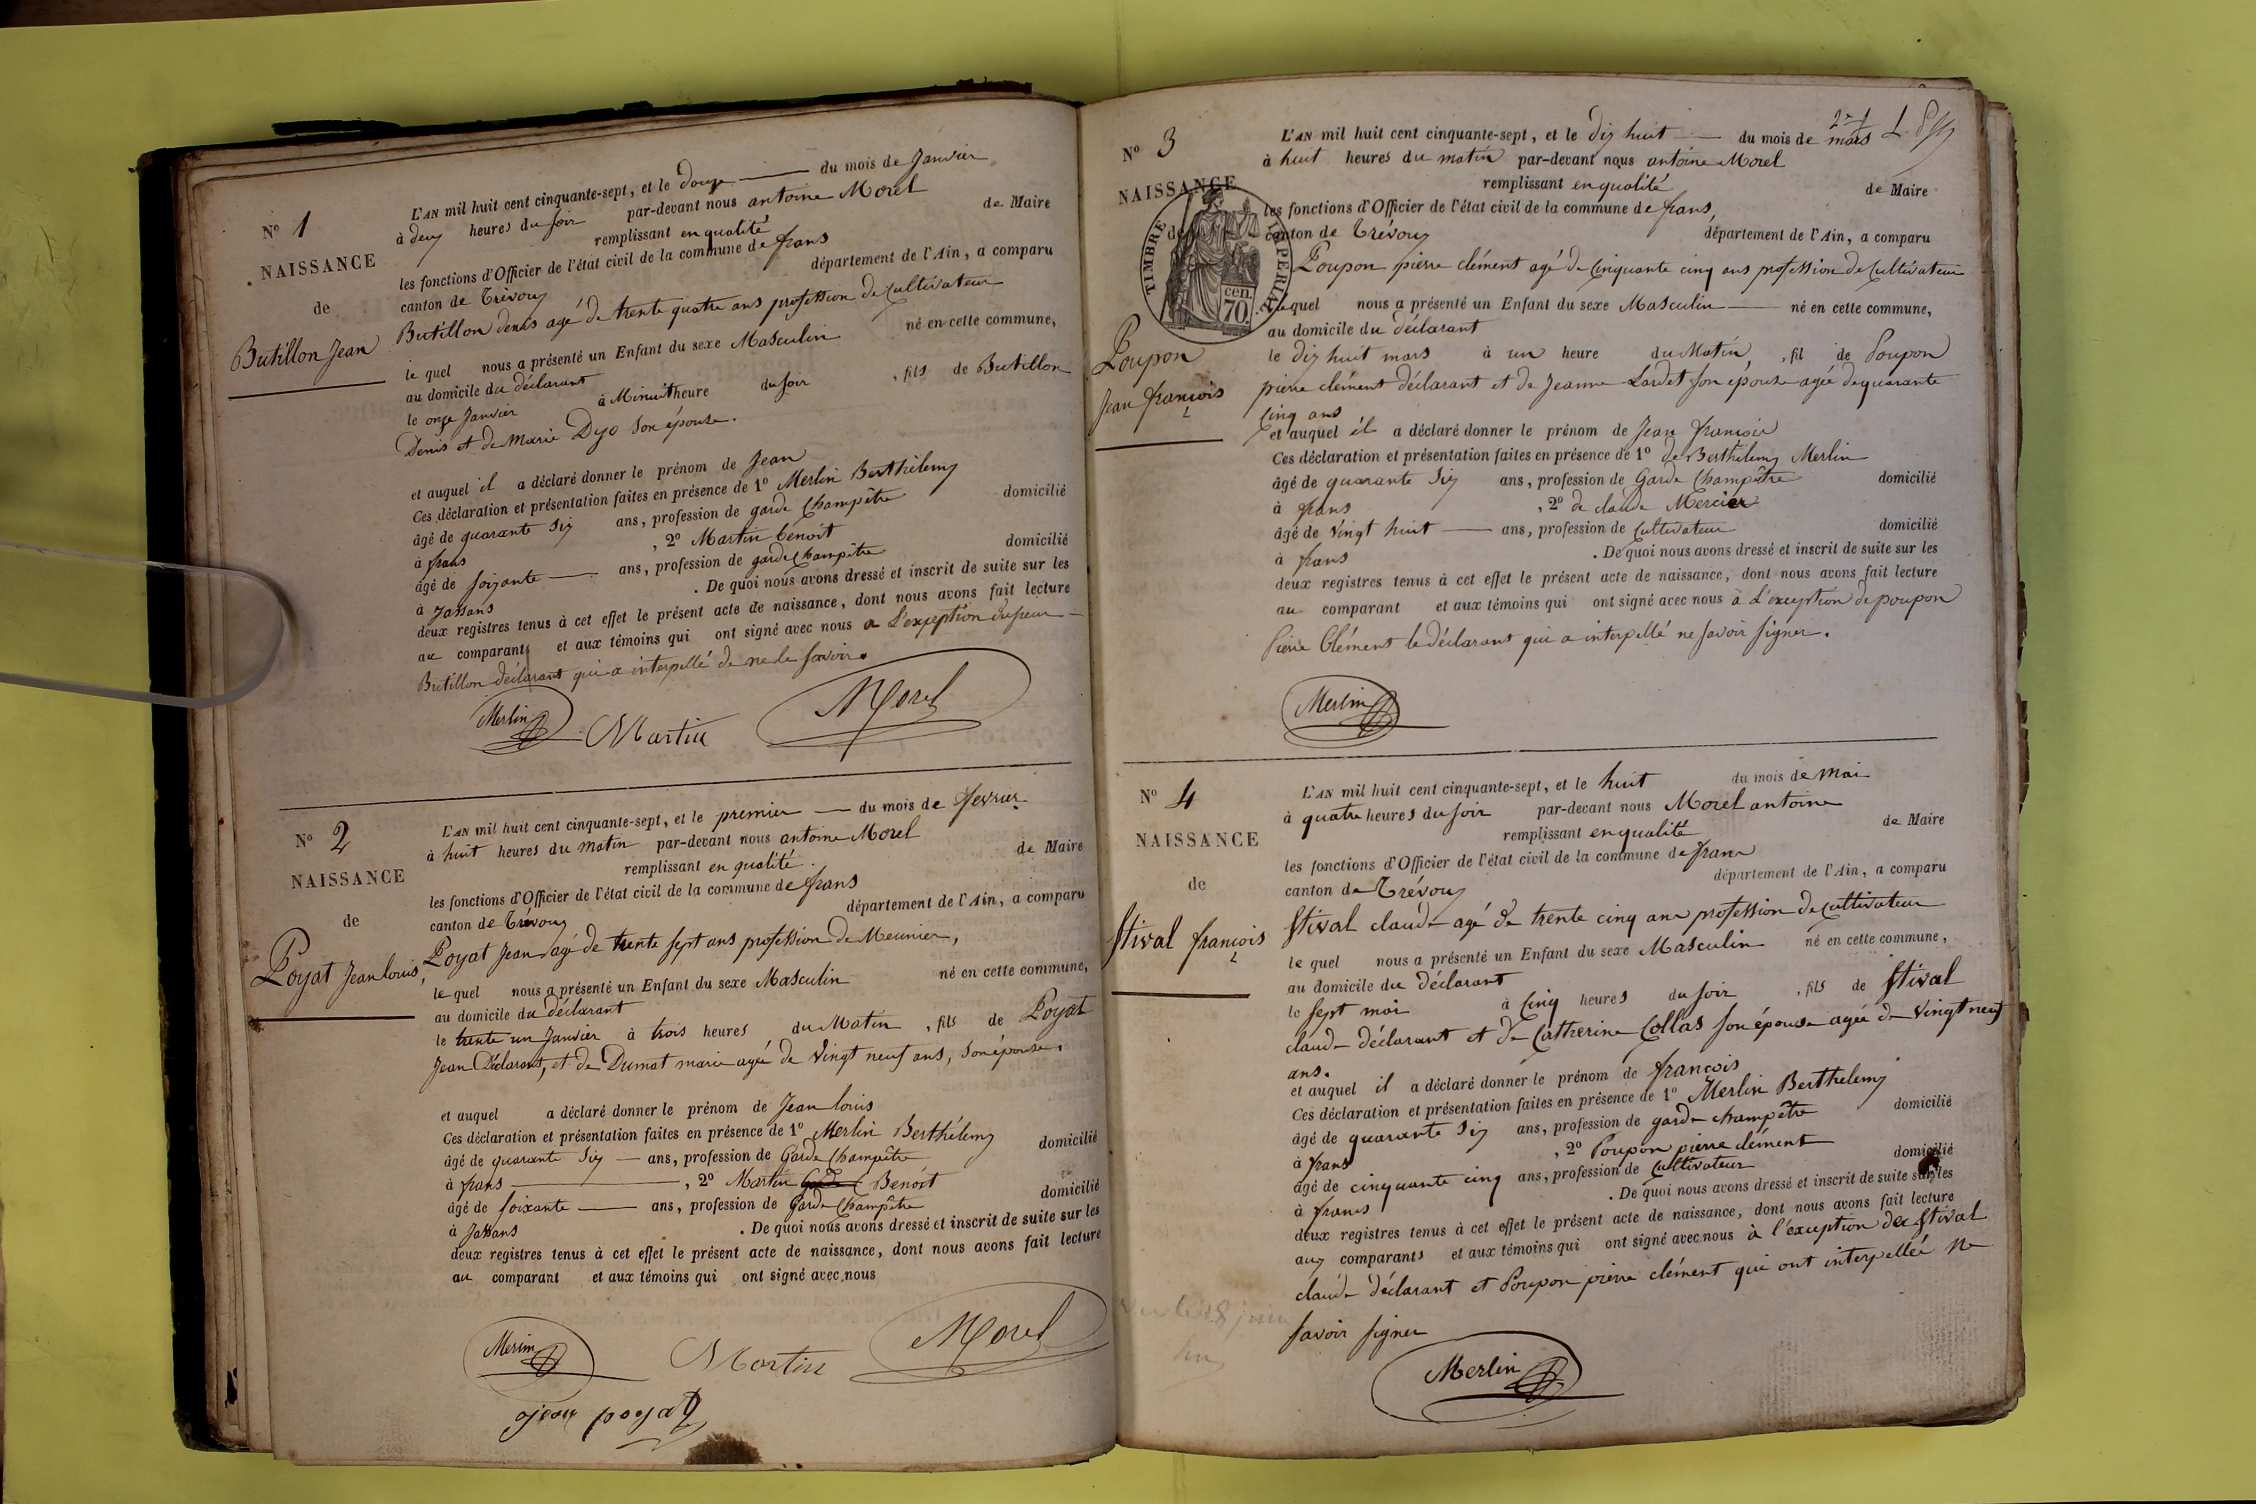 N° 1
NAISSANCE
de
Butillon Jean
L'AN mil huit cent cinquante-sept, et le douze du mois de Janvier
à deux heures du soir par-devant nous antoine Morel
remplissant en qualité de Maire
les fonctions d'Officier de l'état civil de la commune de frans
canton de Trévoux département de l'Ain, a comparu
Butillon denis agé de trente quatre ans profession de Cultivateur
le quel nous a présenté un Enfant du sexe Masculin né en cette commune,
au domicile du déclarant
le onze Janvier à Minuit heure du soir, fils de Butillon
Denis et de Marie Dyo son épouse.
et auquel il a déclaré donner le prénom de Jean
Ces déclaration et présentation faites en présence de 1° Merlin Berthélemy
âgé de quarante Six ans, profession de garde Champêtre domicilié
à frans, 2° Martin benoit
âgé de soixante ans, profession de garde Champêtre domicilié
à Jassans. De quoi nous avons dressé et inscrit de suite sur les
deux registres tenus à cet effet le présent acte de naissance, dont nous avons fait lecture
au comparant et aux témoins qui ont signé avec nous a L'exception
Butillon déclarant qui a interpellé de ne le savoir.
Merlin Martin Morel
N° 2
NAISSANCE
de
Poyat Jean louis
L'AN mil huit cent cinquante-sept, et le premier du mois de fevrier
à huit heures du matin par-devant nous antoine Morel
remplissant en qualité de Maire
les fonctions d'Officier de l'état civil de la commune de frans
canton de Trévoux département de l'Ain, a comparu
Poyat Jean agé de trente sept ans profession de Meunier,
le quel nous a présenté un Enfant du sexe Masculin né en cette commune,
au domicile du déclarant
le trente un Janvier à trois heures du Matin, fils de Poyat
Jean Déclarant, et de Dumat marie agée de Vingt neuf ans, son épouse.
et auquel a déclaré donner le prénom de Jean louis
Ces déclaration et présentation faites en présence de 1° Merlin Berthélemy
âgé de quarante Six ans, profession de Garde Champêtre domicilié
à frans, 2° Martin Benoit
âgé de soixante ans, profession de Garde Champêtre domicilié
à Jassans. De quoi nous avons dressé et inscrit de suite sur les
deux registres tenus à cet effet le présent acte de naissance, dont nous avons fait lecture
au comparant et aux témoins qui ont signé avec nous
Merlin Martin Morel
jean poyat
N° 3
NAISSANCE
de
TIMBRE IMPERIAL
70 cen.
Poupon
Jean françois
L'AN mil huit cent cinquante-sept, et le dix huit du mois de mars
à huit heures du matin par-devant nous antoine Morel
remplissant en qualité de Maire
les fonctions d'Officier de l'état civil de la commune de frans,
canton de Trévoux département de l'Ain, a comparu
Poupon pierre clément agé de Cinquante cinq ans profession de Cultivateur
lequel nous a présenté un Enfant du sexe Masculin né en cette commune,
au domicile du déclarant
le dix huit mars à un heure du Matin, fil de Poupon
pierre clément déclarant et de Jeanne Lardet son épouse agée de quarante
Cinq ans
et auquel il a déclaré donner le prénom de Jean françois
Ces déclaration et présentation faites en présence de 1° de Berthélemy Merlin
âgé de quarante Six ans, profession de Garde Champêtre domicilié
à frans, 2° de claude Mercier
âgé de Vingt huit ans, profession de Cultivateur domicilié
à frans. De quoi nous avons dressé et inscrit de suite sur les
deux registres tenus à cet effet le présent acte de naissance, dont nous avons fait lecture
au comparant et aux témoins qui ont signé avec nous à L'exception de poupon
Pierre Clément le déclarant qui a interpellé ne savoir signer.
Merlin
N° 4
NAISSANCE
de
Stival françois
L'AN mil huit cent cinquante-sept, et le huit du mois de Mai
à quatre heures du soir par-devant nous Morel antoine
remplissant en qualité de Maire
les fonctions d'Officier de l'état civil de la commune de frans
canton de Trévoux département de l'Ain, a comparu
Stival claude agé de trente cinq ans profession de Cultivateur
le quel nous a présenté un Enfant du sexe Masculin né en cette commune,
au domicile du déclarant
le sept mai à Cinq heures du soir, fils de Stival
claude déclarant et de Catherine Collas son épouse agée de Vingt neuf
ans.
et auquel il a déclaré donner le prénom de françois
Ces déclaration et présentation faites en présence de 1° Merlin Berthelemy
âgé de quarante Six ans, profession de garde champêtre domicilié
à frans, 2° Poupon pierre clément
âgé de cinquante cinq ans, profession de Cultivateur domicilié
à frans. De quoi nous avons dressé et inscrit de suite sur les
deux registres tenus à cet effet le présent acte de naissance, dont nous avons fait lecture
aux comparants et aux témoins qui ont signé avec nous à l'exception de Stival
claude déclarant et Poupon pierre clément qui ont interpellée ne
savoir signer
Merlin